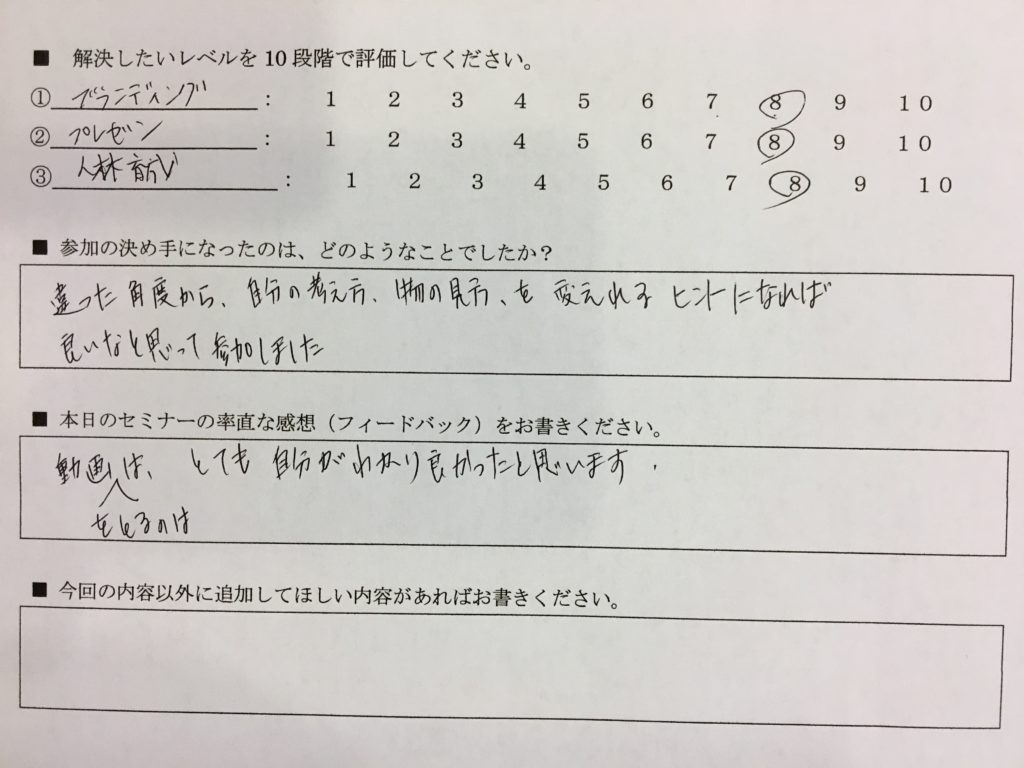 ■ 解決したいレベルを10段階で評価してください。
① ブランディング : 1 2 3 4 5 6 7 8 9 10
② プレゼン : 1 2 3 4 5 6 7 8 9 10
③ 人林育成 : 1 2 3 4 5 6 7 8 9 10
■ 参加の決め手になったのは、どのようなことでしたか？
違った角度から、自分の考え方、物の見方、を変えれるヒントになれば
良いなと思って参加しました
■ 本日のセミナーの率直な感想（フィードバック）をお書きください。
動画は、とても自分がわかり良かったと思います.
をとるのは
■ 今回の内容以外に追加してほしい内容があればお書きください。